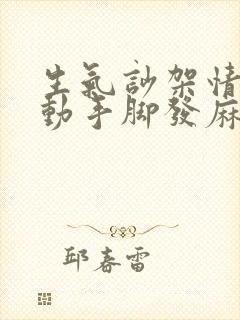 生氣訬架情
動手脚發麻
邱春雷